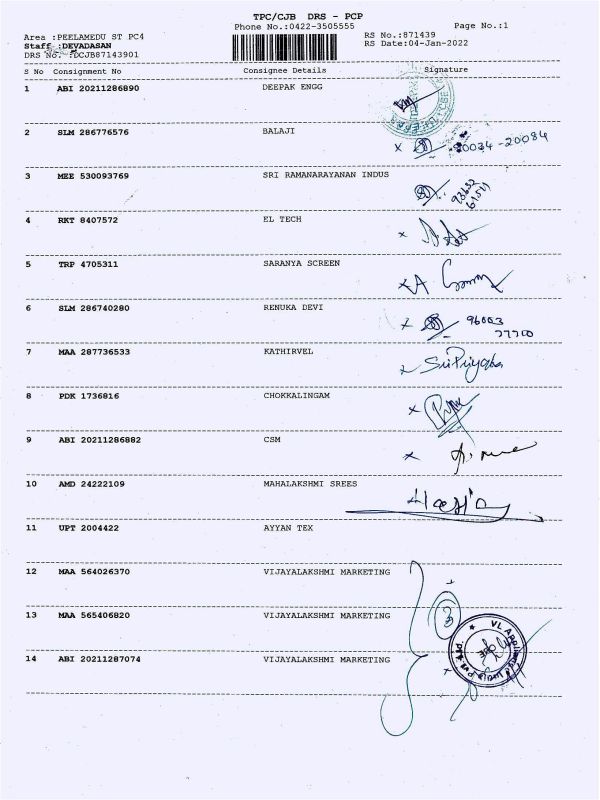 TPC/CJB DRS - PCP
Phone No.:0422-3505555 Page No.:1
Area :PEELAMEDU ST PC4 RS No.:871439
Staff :DEVADASAN RS Date:04-Jan-2022
DRS No. :DCJB87143901
S No Consignment No Consignee Details Signature
1 ABI 20211286890 DEEPAK ENGG
2 SLM 286776576 BALAJI
x 90034-20084
3 MEE 530093769 SRI RAMANARAYANAN INDUS
4 RKT 8407572 EL TECH
x
5 TRP 4705311 SARANYA SCREEN
x
6 SLM 286740280 RENUKA DEVI
x 96003
77700
7 MAA 287736533 KATHIRVEL
x SriPriya
8 PDK 1736816 CHOKKALINGAM
x
9 ABI 20211286882 CSM
x
10 AMD 24222109 MAHALAKSHMI SREES
11 UPT 2004422 AYYAN TEX
12 MAA 564026370 VIJAYALAKSHMI MARKETING
13 MAA 565406820 VIJAYALAKSHMI MARKETING
3
14 ABI 20211287074 VIJAYALAKSHMI MARKETING